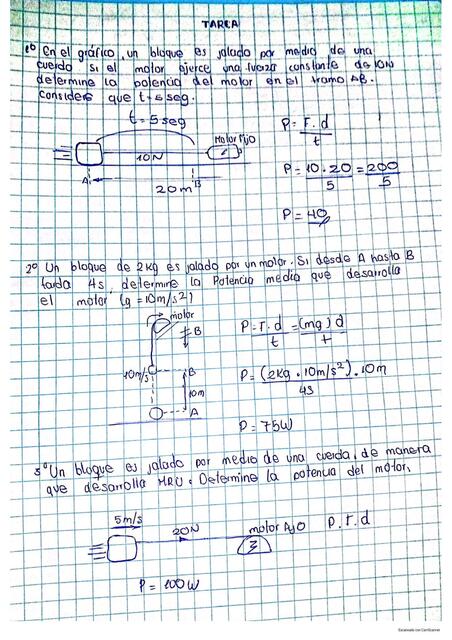 TAREA
1º En el gráfico, un bloque es jalado por medio de una
cuerda si el motor ejerce una fuerza constante de 10N
determine la potencia del motor en el tramo AB.
Considere que t=5 seg.
t=5seg
Motor fijo
10N
A
B
20m
P= F.d
t
P= 10.20 = 200
5 5
P= 40
2º Un bloque de 2kg es jalado por un motor. Si desde A hasta B
tarda 4s, determine la Potencia media que desarrolla
el motor (g=10m/s²)
motor
B
10m/s
B
10m
A
P= F.d = (mg)d
t t
P= (2kg.10m/s²).10m
4s
P= 75W
3º Un bloque es jalado por medio de una cuerda, de manera
que desarrolla MRU. Determine la potencia del motor.
5m/s
20N
motor fijo
P.F.d
P = 100W
Escaneado con CamScanner